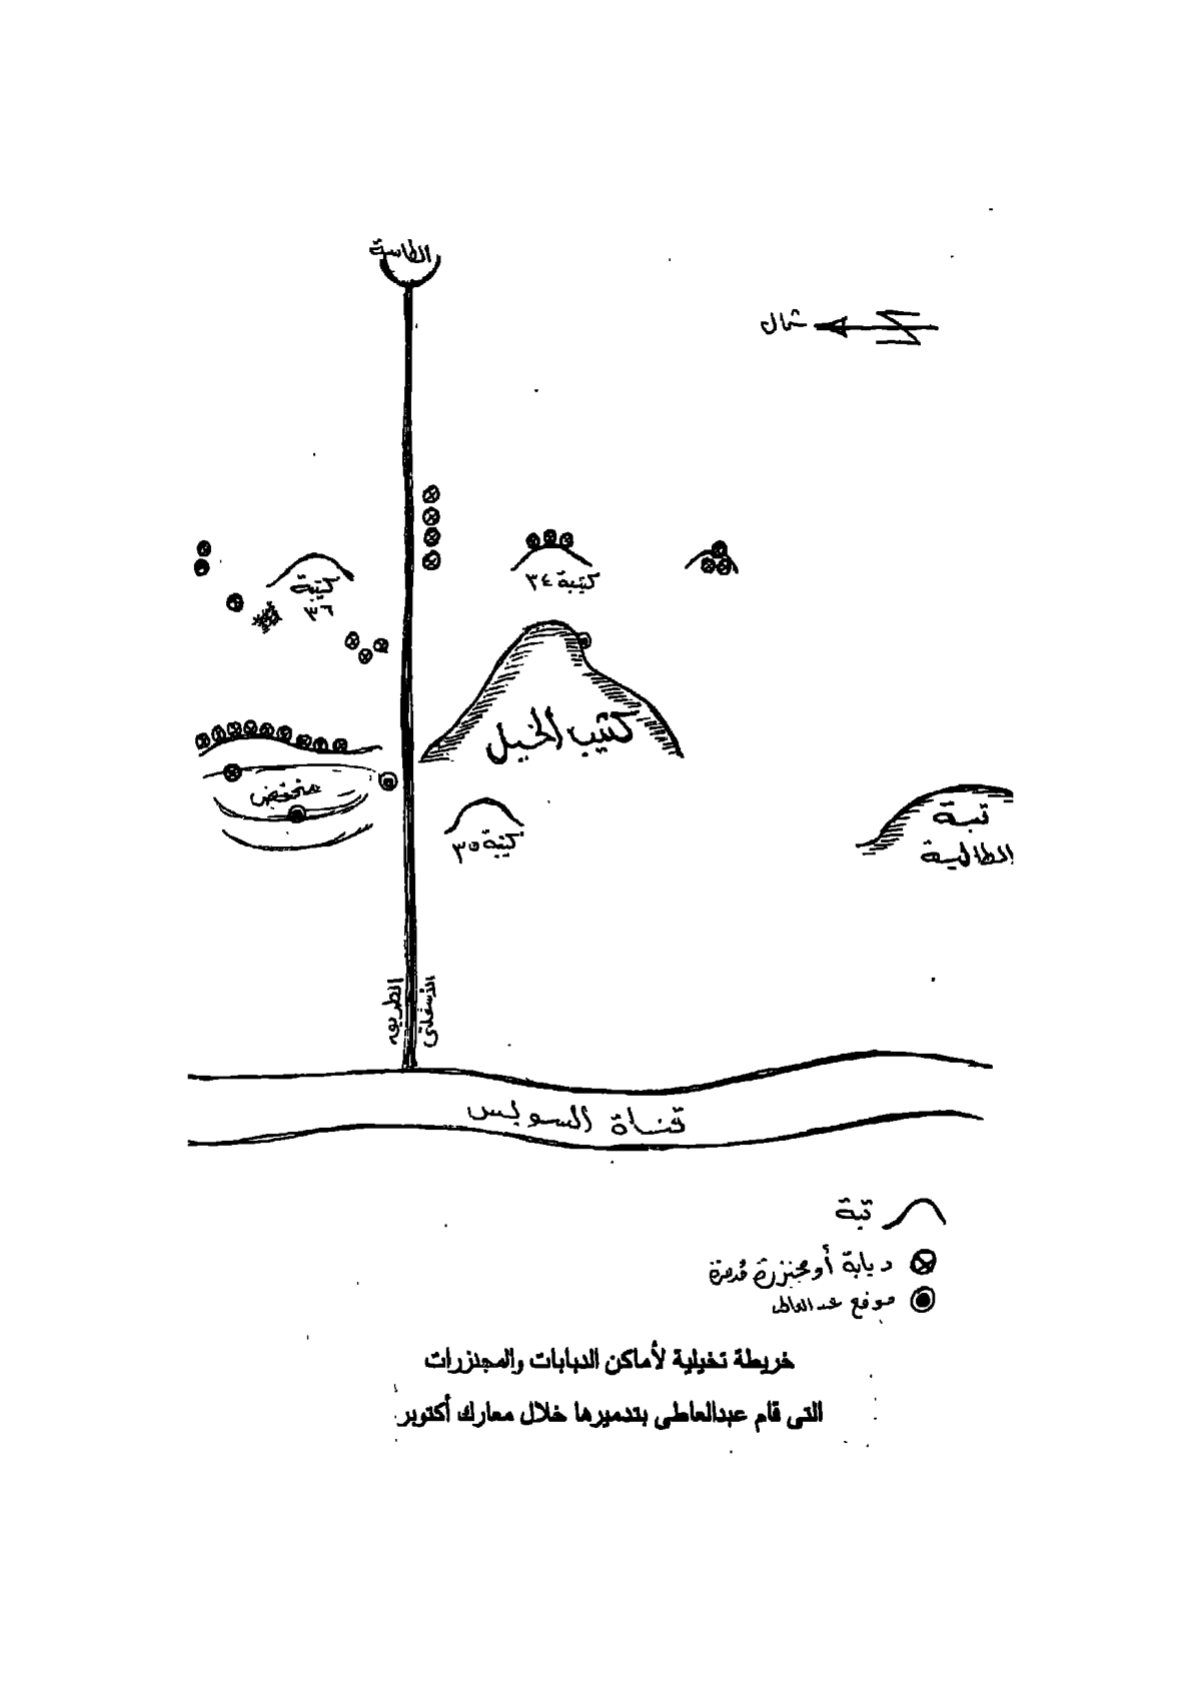 الطاسة
شمال
كتيبة ٣٤
كتيبة
٣٦
كثيب الخيل
منخفض
كتيبة ٣٥
تبة
الطالية
الطريق
الأسفلتى
قناة السويس
تبة
دبابة أو مجنزرة مدمرة
موقع عبد العاطى
خريطة تخيلية لأماكن الدبابات والمجنزرات
التى قام عبدالعاطى بتدميرها خلال معارك أكتوبر